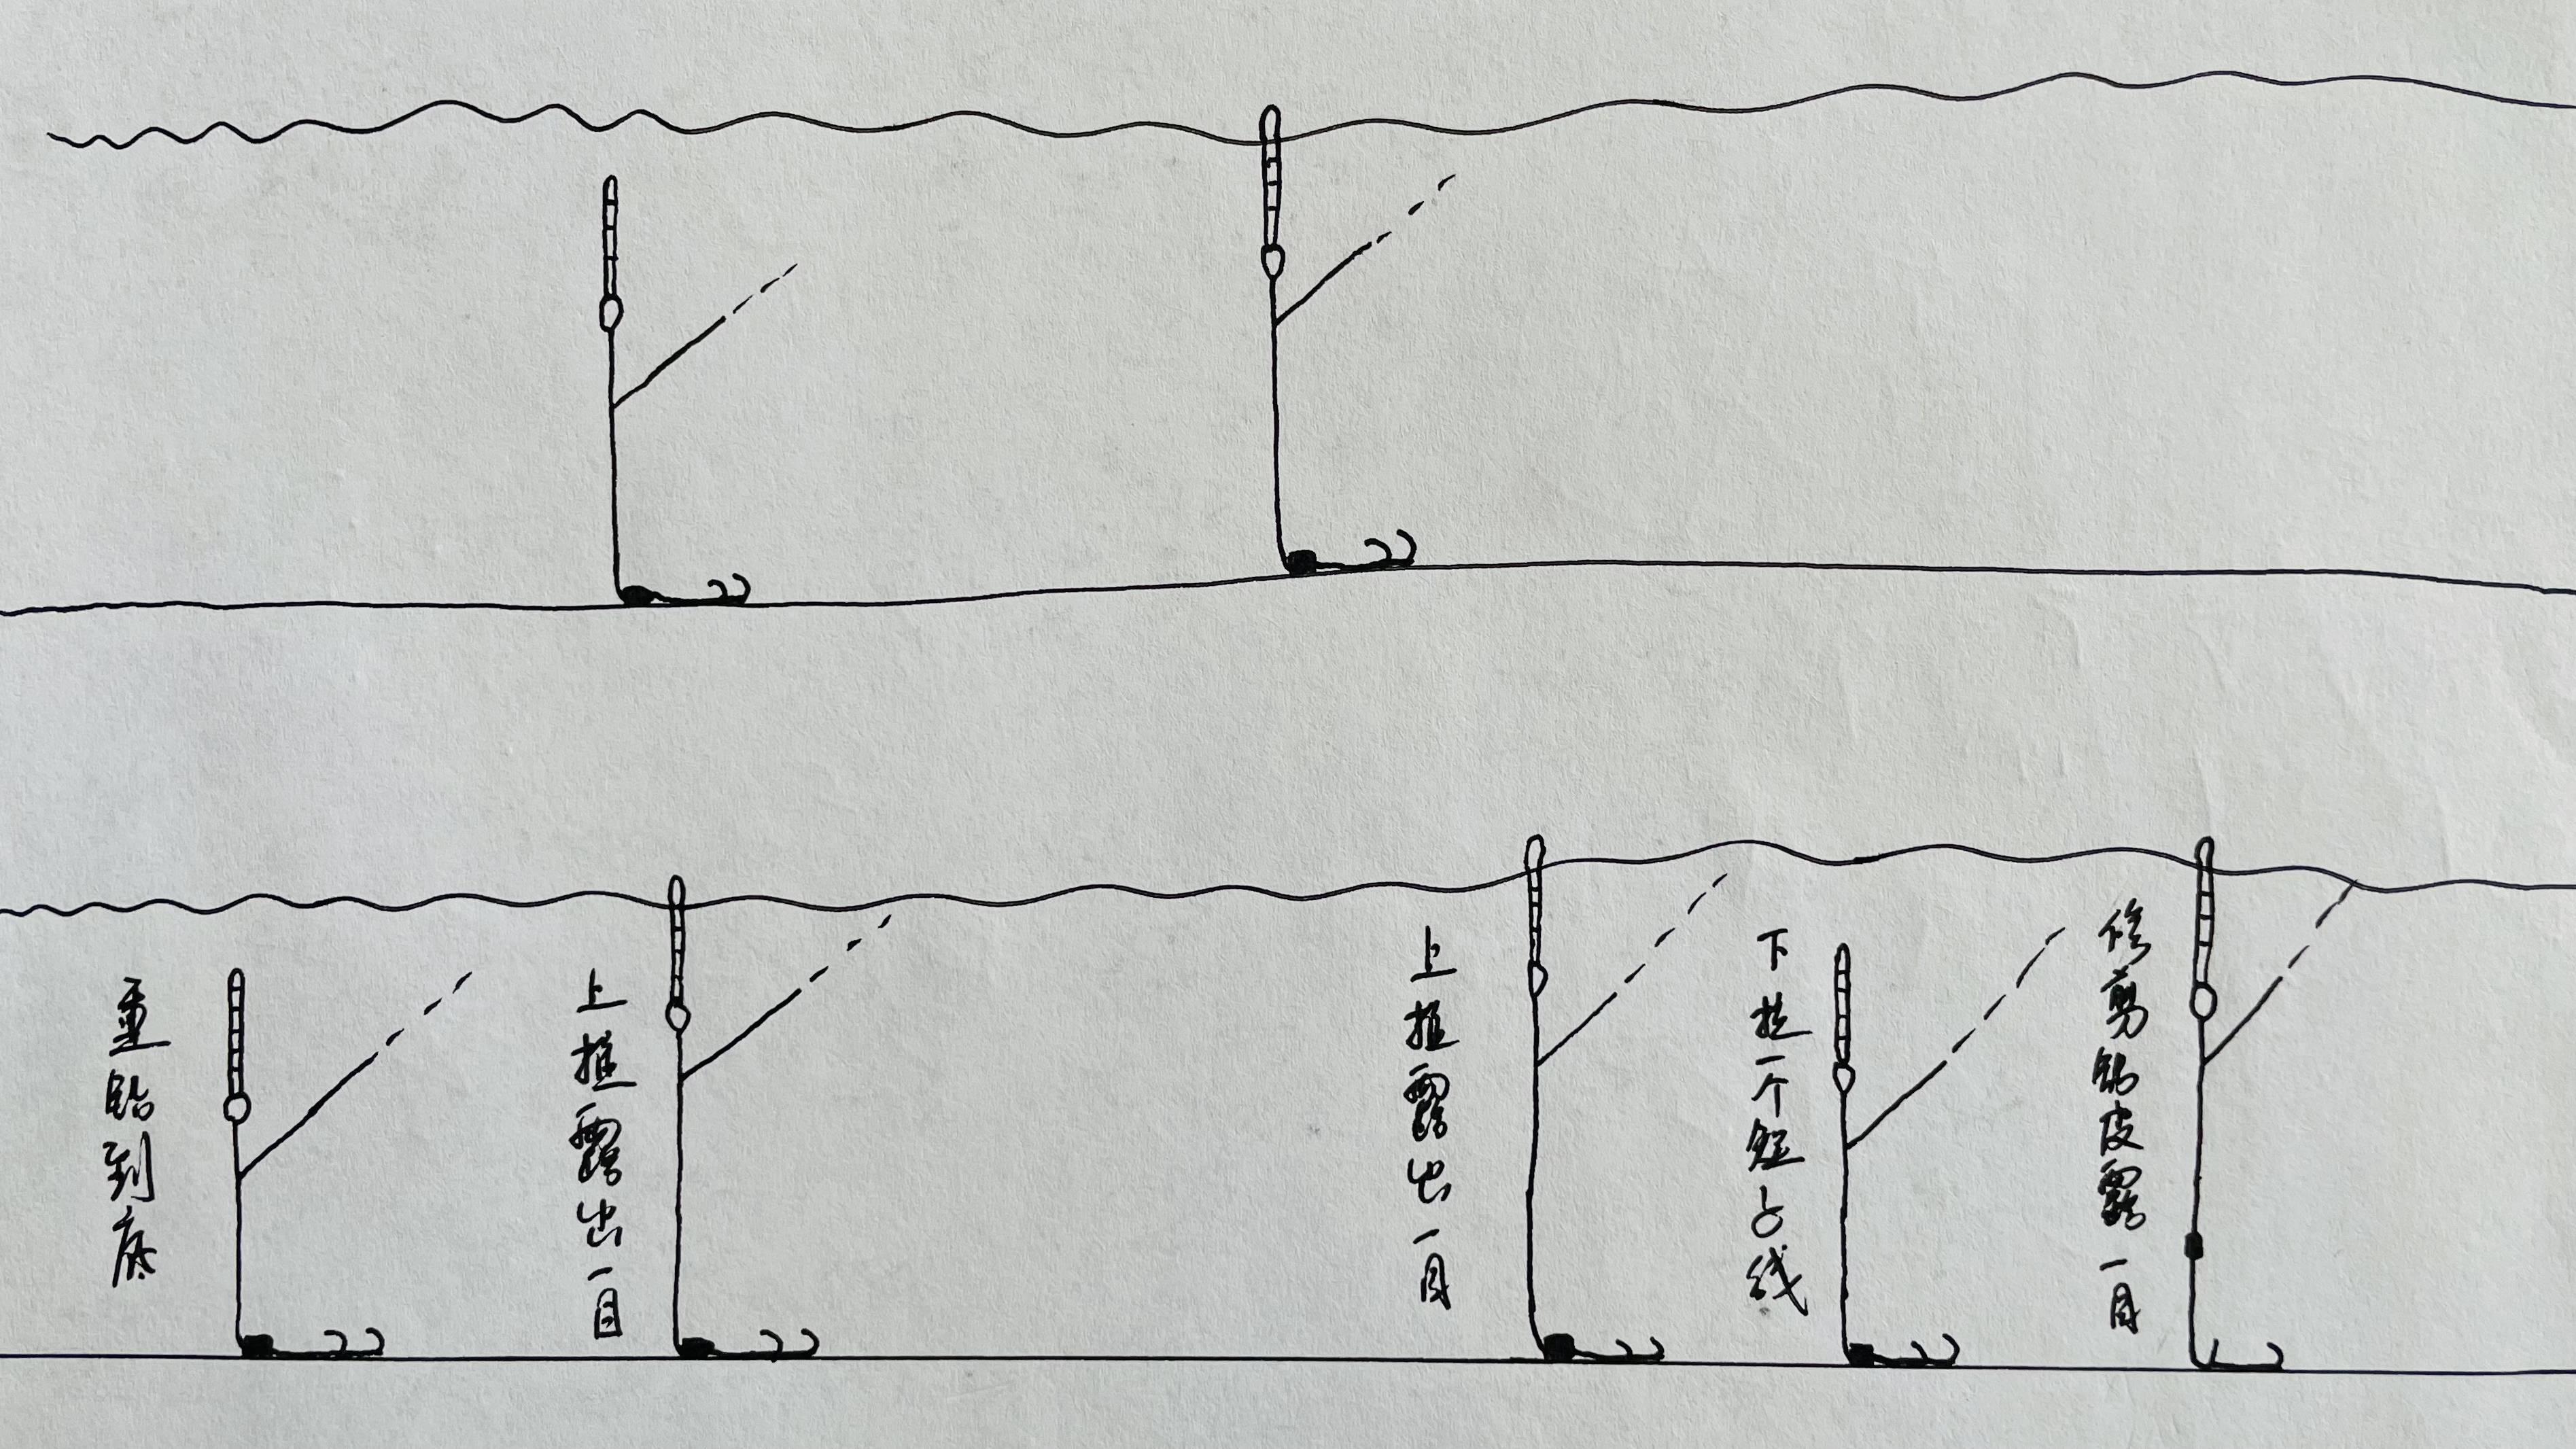 重铅到底
上推露出一目
上推露出一目
下拉一个短子线
修剪铅皮露一目